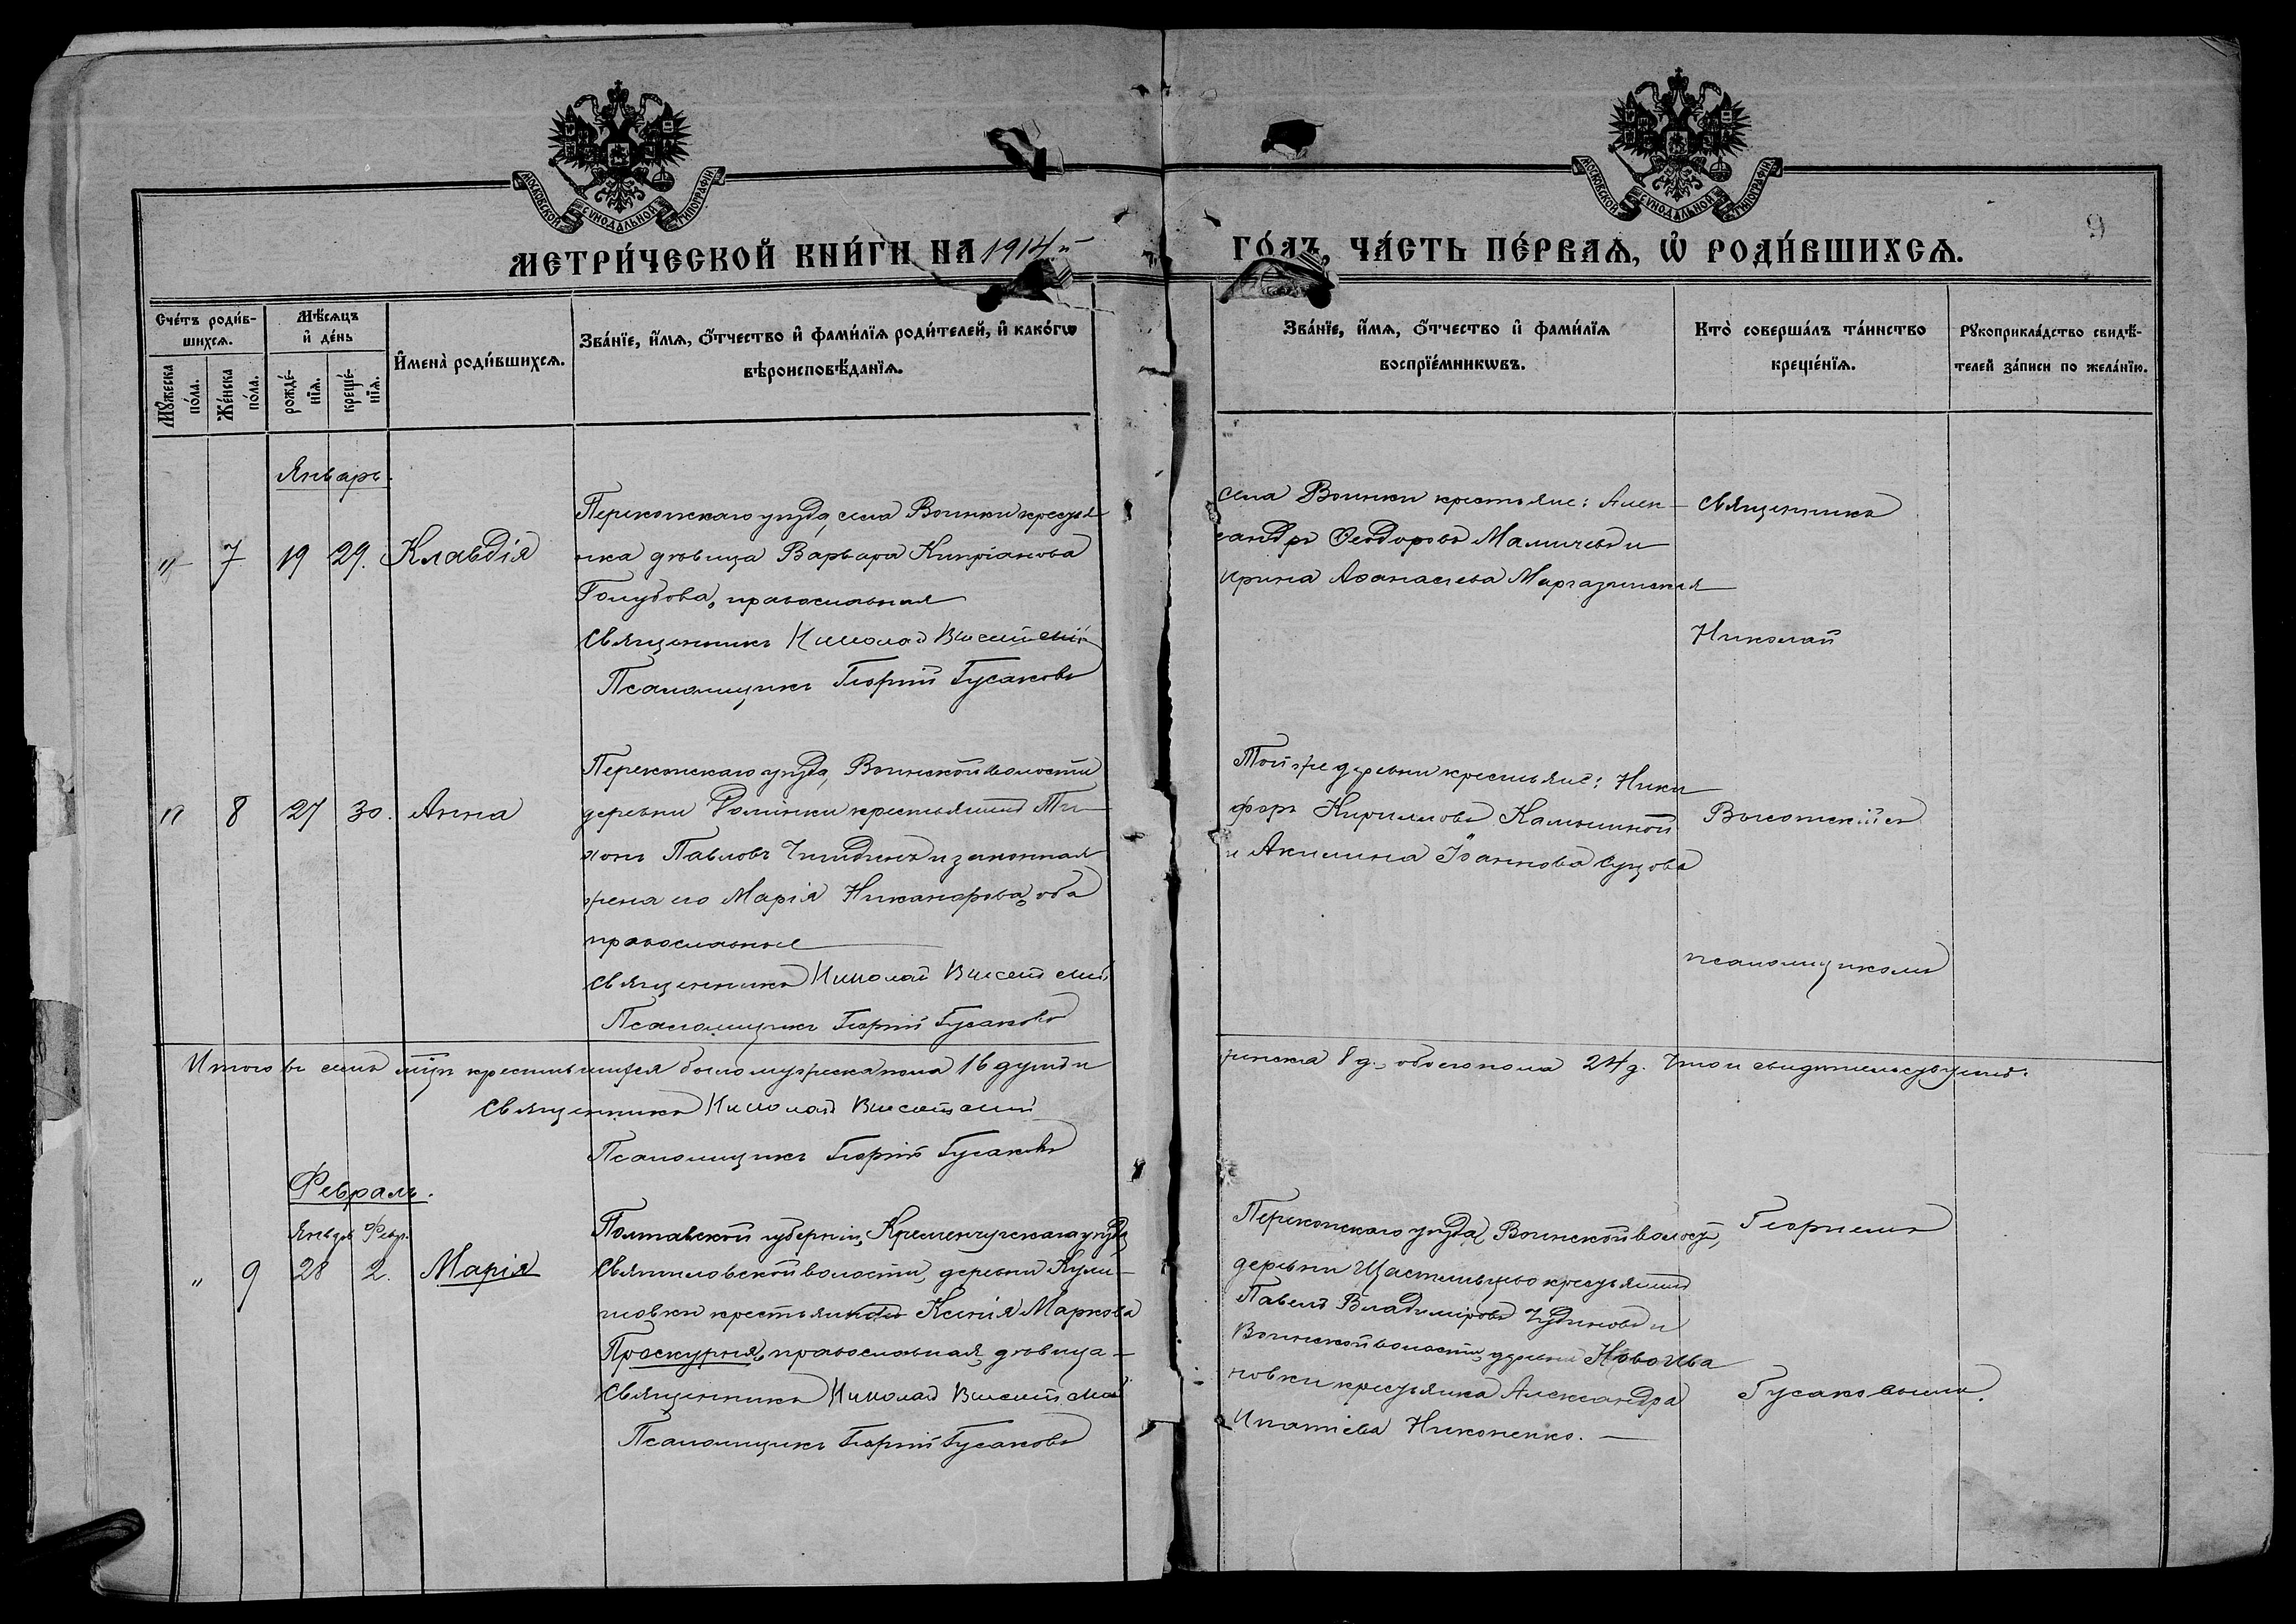 МОСКОВСКОЙ СУНОДАЛЬНОЙ ТИПОГРАФІИ
МОСКОВСКОЙ СУНОДАЛЬНОЙ ТИПОГРАФІИ
9
МЕТРИ́ЧЕСКОЙ КНИ́ГИ НА 1914й
ГО́ДЪ, ЧА́СТЬ ПЕ́РВАѦ, Ѡ҆ РОДИ́ВШИХСѦ.
Сче́тъ роди́в-
шихсѧ.
Мѣ́сѧцъ
и҆ де́нь
Мꙋ́жеска
по́ла.
Же́нска
по́ла.
рожде́-
нїѧ.
креще́-
нїѧ.
И҆мена̀ роди́вшихсѧ.
Зва́нїе, и҆́мѧ, ѻ҆́тчество и҆ фами́лїѧ роди́телей, и҆ како́гѡ
вѣроисповѣ́данїѧ.
Зва́нїе, и҆́мѧ, ѻ҆́тчество и҆ фами́лїѧ
воспрїе́мникѡвъ.
Кто̀ соверша́лъ та́инство
креще́нїѧ.
Рꙋкоприкла́дство свидѣ́-
телей за́писи по жела́нїю.
Январь.
7 19 29. Клавдія
Перекопскаго уѣзда, села Воинки крестья-
нка дѣвица Варвара Кипріанова
Голубова, православная
Священникъ Николай Высотскій
Псаломщикъ Георгій Гусаковъ
села Воинки крестьяне: Алек-
сандръ Ѳеодоровъ Мамичевъ и
Ирина Аѳанасіева
Священникъ
Николай
" 8 27 30. Анна
Перекопскаго уѣзда, Воинской волости
деревни крестьянинъ Ти-
хонъ Павловъ и законная
жена его Марія Никанорова, оба
православные
Священникъ Николай Высотскій
Псаломщикъ Георгій Гусаковъ
Той же деревни крестьяне: Ники
форъ Кирилловъ
и Акилина Іоаннова
Высотскій съ
псаломщикомъ
Итого въ семъ мцѣ крестившихся было мужеска пола 16 душъ и
женска 8 д., обоего пола 24 д. Что и свидѣтельствуемъ.
Священникъ Николай Высотскій
Псаломщикъ Георгій Гусаковъ
Февраль.
Январ Февр.
" 9 28 2. Марія
Полтавской губерніи, Кременчугскаго уѣзда
волости, деревни Кули-
шовки крестьянка Ксенія Маркова
Проскурня, православная, дѣвица
Священникъ Николай Высотскій
Псаломщикъ Георгій Гусаковъ
Перекопскаго уѣзда, Воинской волости,
деревни крестьянинъ
Павелъ Владиміровъ Чудиновъ и
Воинской волости, деревни Ново Ива
новки крестьянка Александра
Ипатіева Никоненко.
Георгіемъ
Гусаковымъ.